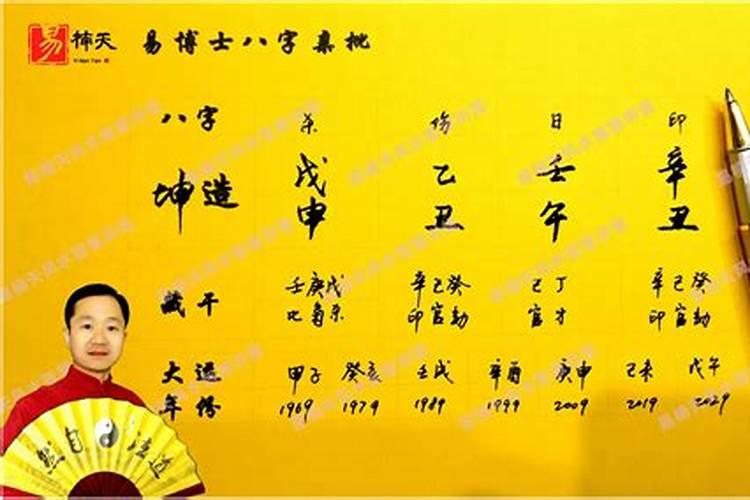 易 楠天 易博士八字案批
八字 杀 伤 日 印
坤造 戊 乙 壬 辛
申 丑 午 丑
藏干 壬庚戊 辛己癸 己丁 辛己癸
比枭杀 印官劫 官才 印官劫
大运 甲子 癸亥 壬戌 辛酉 庚申 己未 戊午
年份 1969 1979 1989 1999 2009 2019 2029
然自法道